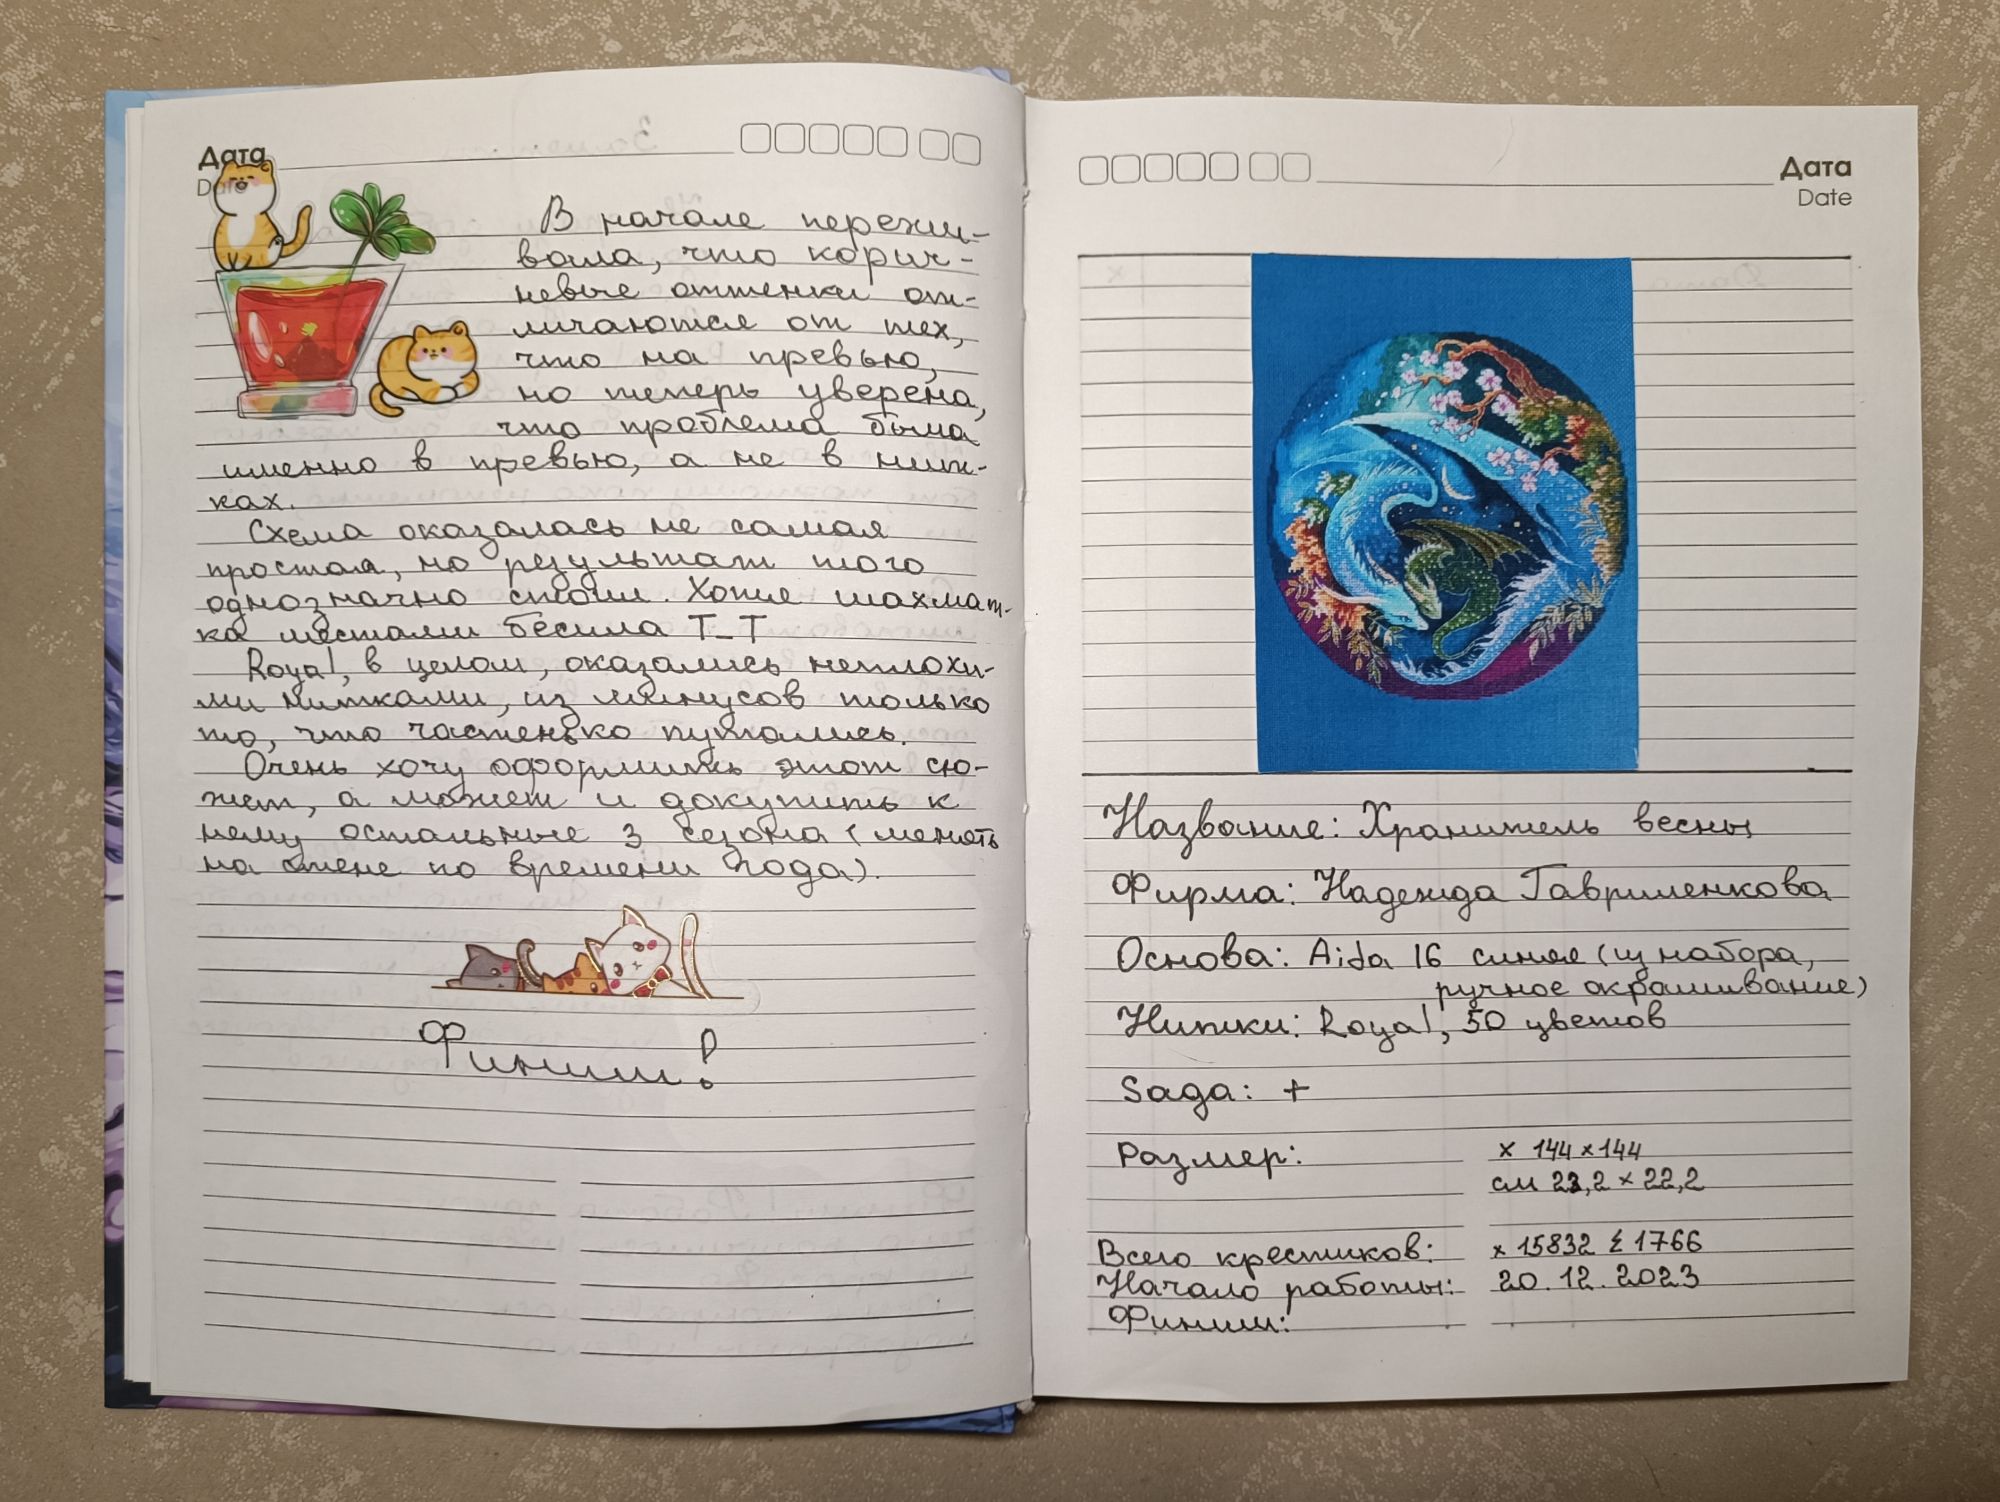 Дата
Date
В начале пережи-
вала, что корич-
невые оттенки от-
личаются от тех,
что на превью,
но теперь уверена,
что проблема была
именно в превью, а не в нит-
ках.
Схема оказалась не самая
простая, но результат того
однозначно стоил. Хотя шахмат-
ка местами бесила T_T
Royal, в целом, оказались неплохи-
ми нитками, из минусов только
то, что частенько путались.
Очень хочу оформить этот сю-
жет, а может и докупить к
нему остальные 3 сезона (менять
на стене по времени года).
Финиш!
Дата
Date
Название: Хранитель весны
Фирма: Надежда Гавриленкова
Основа: Aida 16 синяя (из набора,
ручное окрашивание)
Нитки: Royal, 50 цветов
Saga: +
Размер: x 144 x 144
см 22,2 x 22,2
Всего крестиков: x 15832 ½ 1766
Начало работы: 20.12.2023
Финиш: